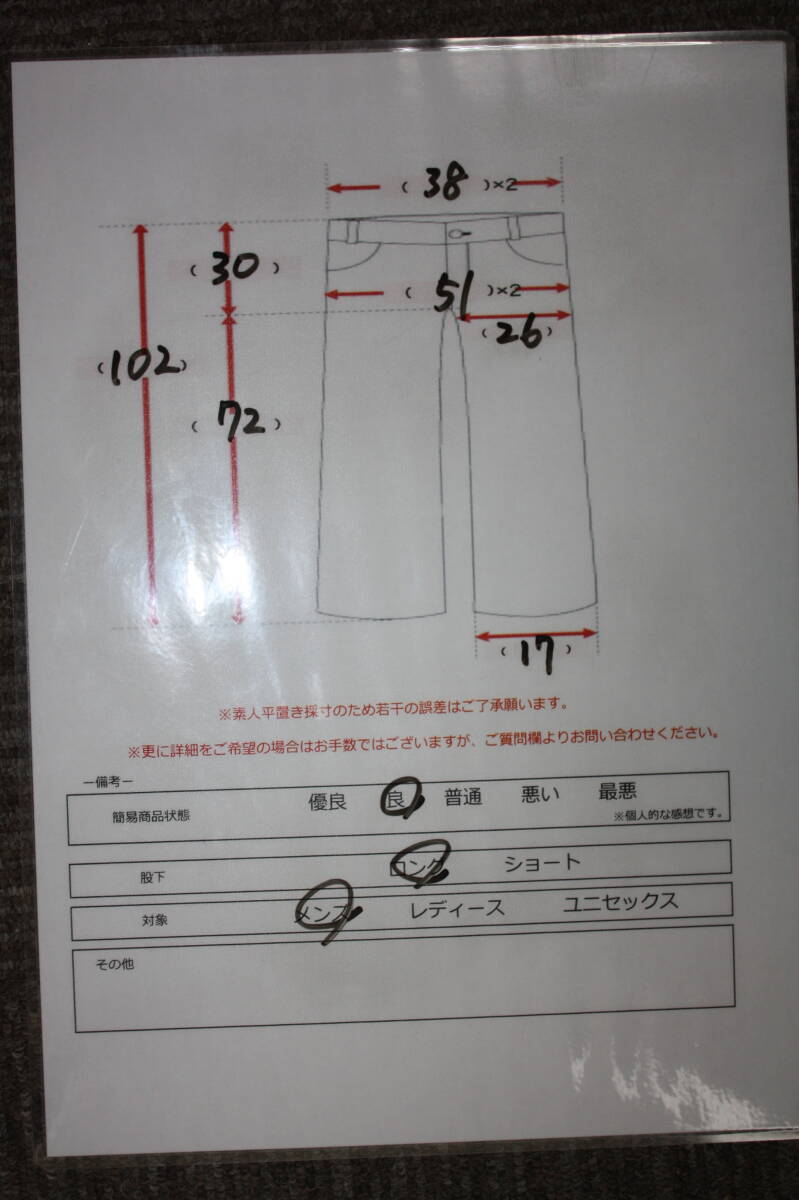 ( 38 )×2
( 30 )
( 51 )×2
( 26 )
( 102 )
( 72 )
( 17 )
※素人平置き採寸のため若干の誤差はご了承願います。
※更に詳細をご希望の場合はお手数ではございますが、ご質問欄よりお問い合わせください。
ー備考ー
簡易商品状態 優良 良 普通 悪い 最悪
※個人的な感想です。
股下 ロング ショート
対象 メンズ レディース ユニセックス
その他